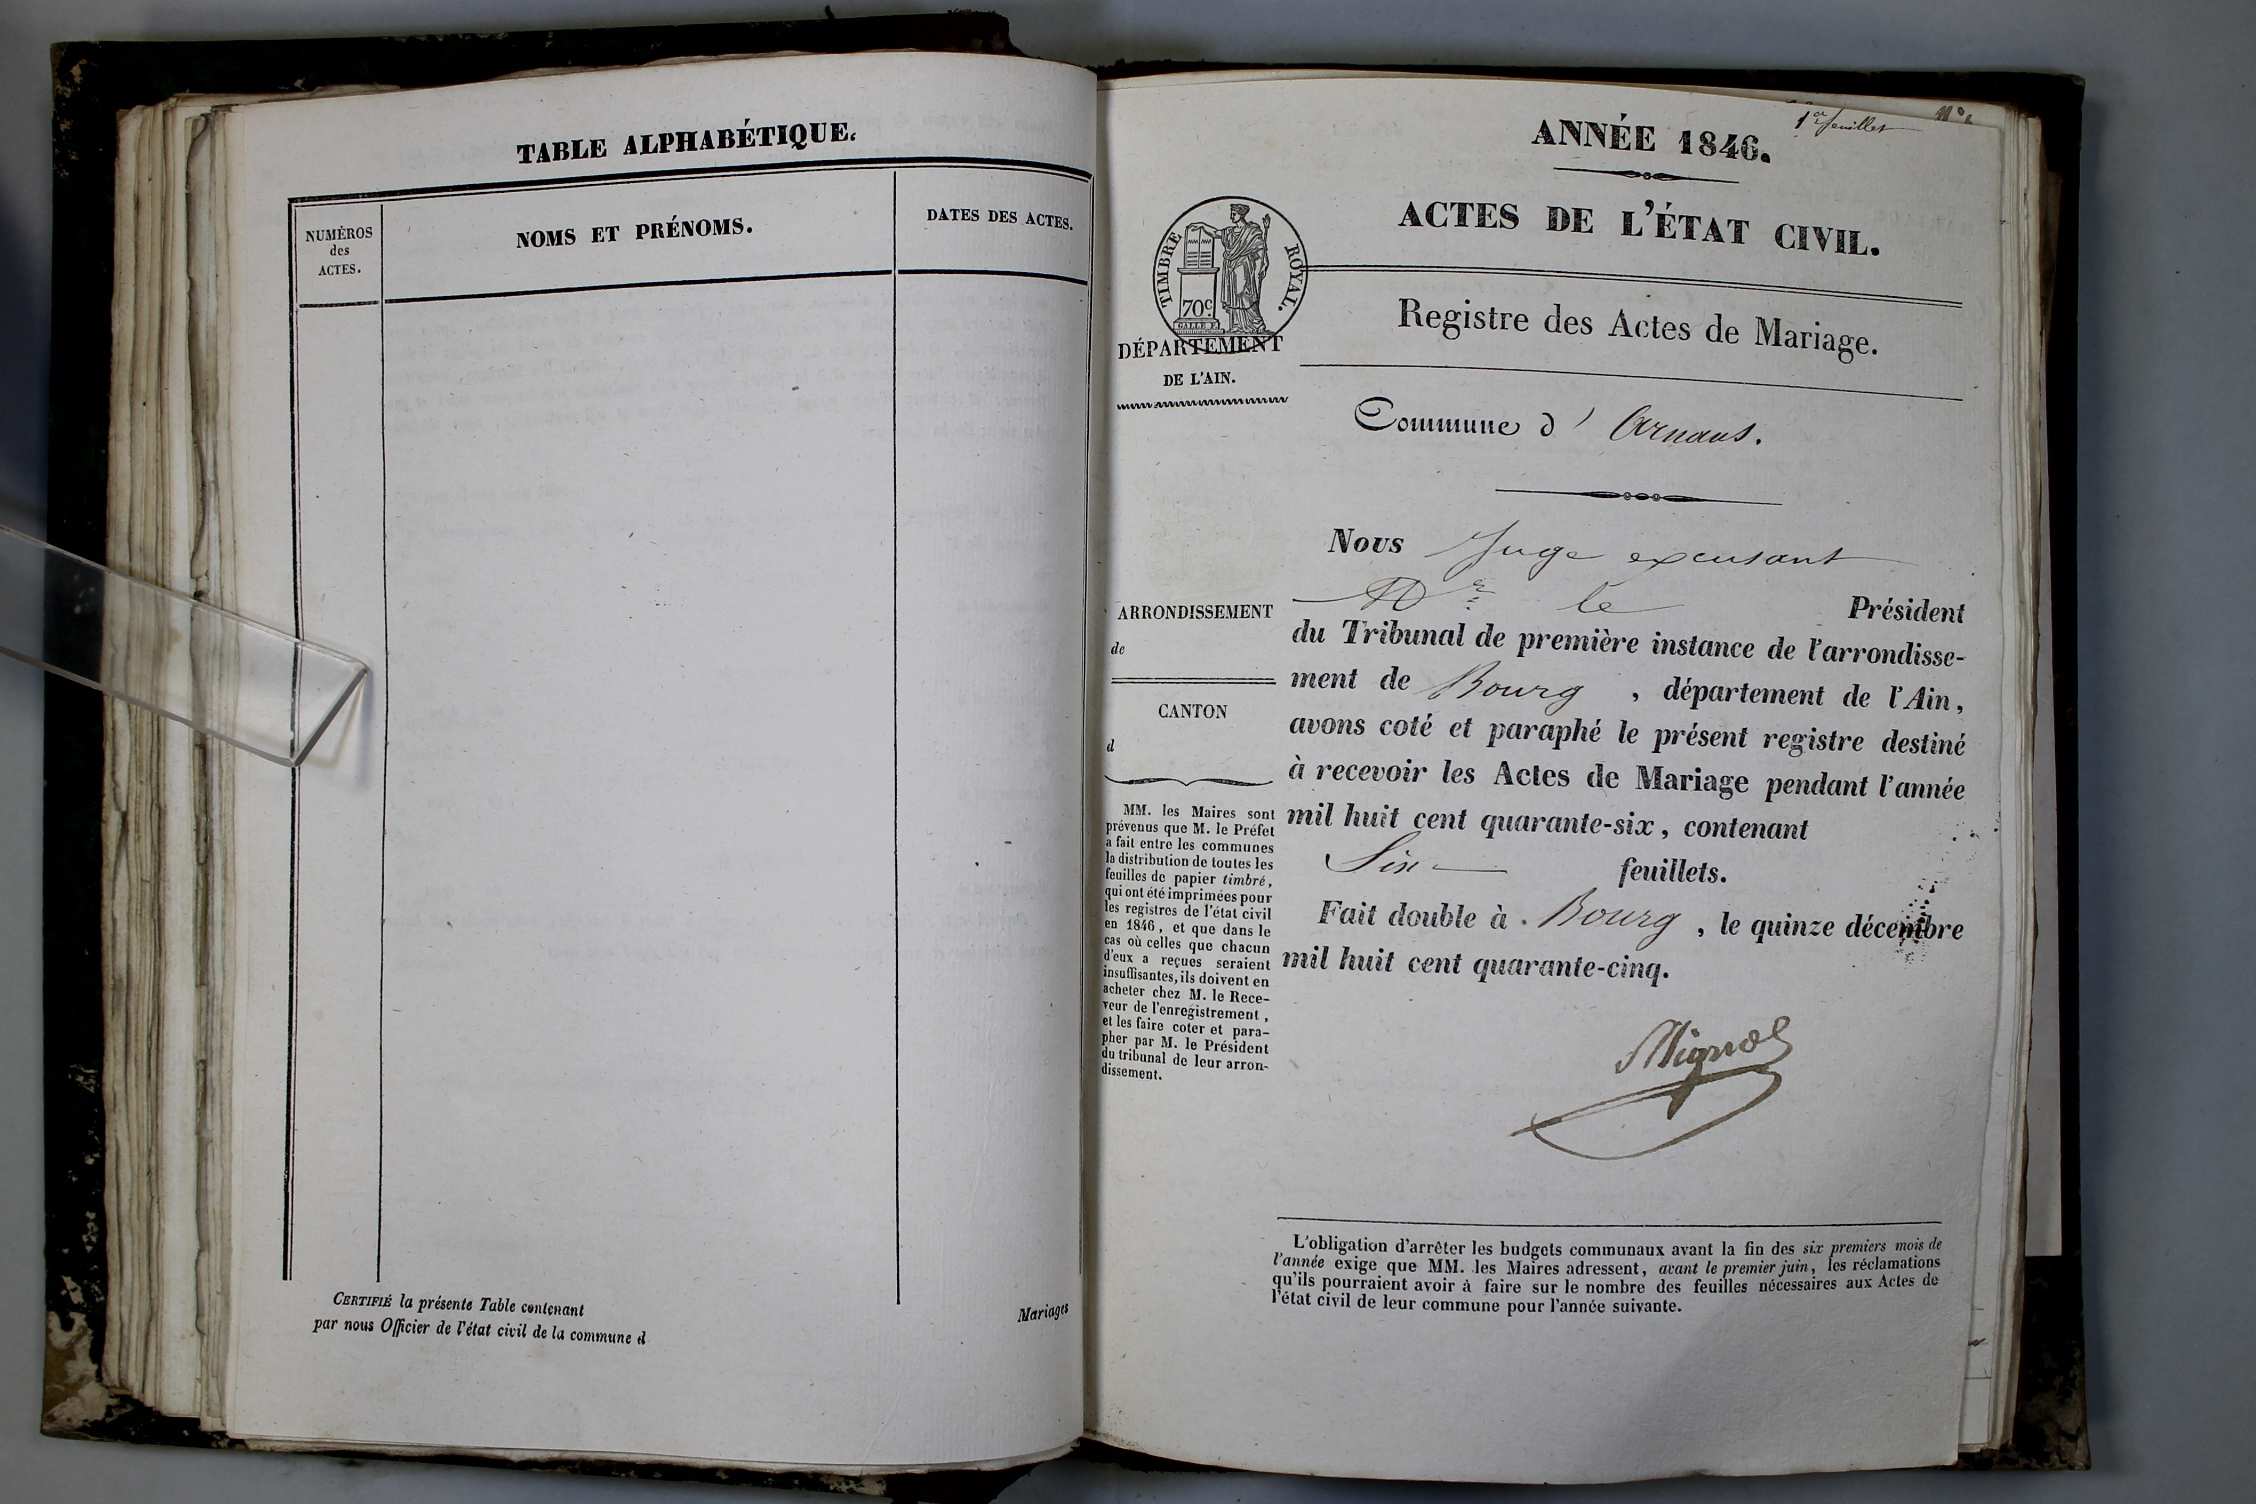 TABLE ALPHABÉTIQUE.
NUMÉROS
des
ACTES.
NOMS ET PRÉNOMS.
DATES DES ACTES.
CERTIFIÉ la présente Table contenant
par nous Officier de l'état civil de la commune d
Mariages
1er feuillet
ANNÉE 1846.
ACTES DE L'ÉTAT CIVIL.
TIMBRE ROYAL.
70c
DÉPARTEMENT
DE L'AIN.
Registre des Actes de Mariage.
Commune d' Arnans.
Nous Juge excusant
Mr le Président
du Tribunal de première instance de l'arrondisse-
ment de Bourg, département de l'Ain,
avons coté et paraphé le présent registre destiné
à recevoir les Actes de Mariage pendant l'année
mil huit cent quarante-six, contenant
Six feuillets.
Fait double à Bourg, le quinze décembre
mil huit cent quarante-cinq.
ARRONDISSEMENT
de
CANTON
d
MM. les Maires sont
prévenus que M. le Préfet
a fait entre les communes
la distribution de toutes les
feuilles de papier timbré,
qui ont été imprimées pour
les registres de l'état civil
en 1846, et que dans le
cas où celles que chacun
d'eux a reçues seraient
insuffisantes, ils doivent en
acheter chez M. le Rece-
veur de l'enregistrement,
et les faire coter et para-
pher par M. le Président
du tribunal de leur arron-
dissement.
L'obligation d'arrêter les budgets communaux avant la fin des six premiers mois de
l'année exige que MM. les Maires adressent, avant le premier juin, les réclamations
qu'ils pourraient avoir à faire sur le nombre des feuilles nécessaires aux Actes de
l'état civil de leur commune pour l'année suivante.